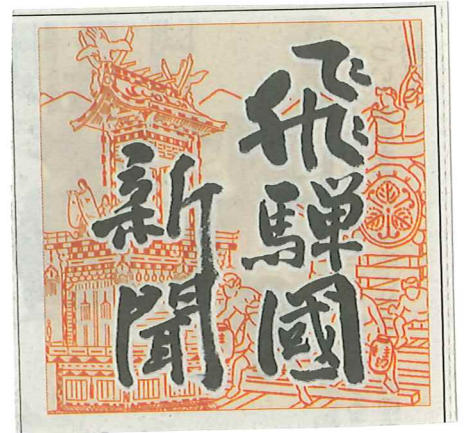 飛騨國
新聞